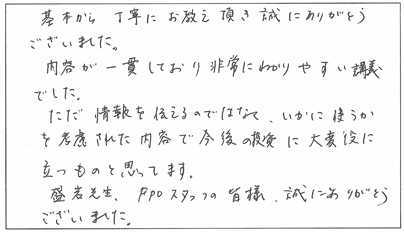 基本から丁寧にお教え頂き誠にありがとう
ございました。
内容が一貫しており非常にわかりやすい講義
でした。
ただ情報を伝えるのではなく、いかに使うか
を考慮された内容で今後の投資に大変役に
立つものと思ってます。
盛岩先生、FPOスタッフの皆様、誠にありがとう
ございました。